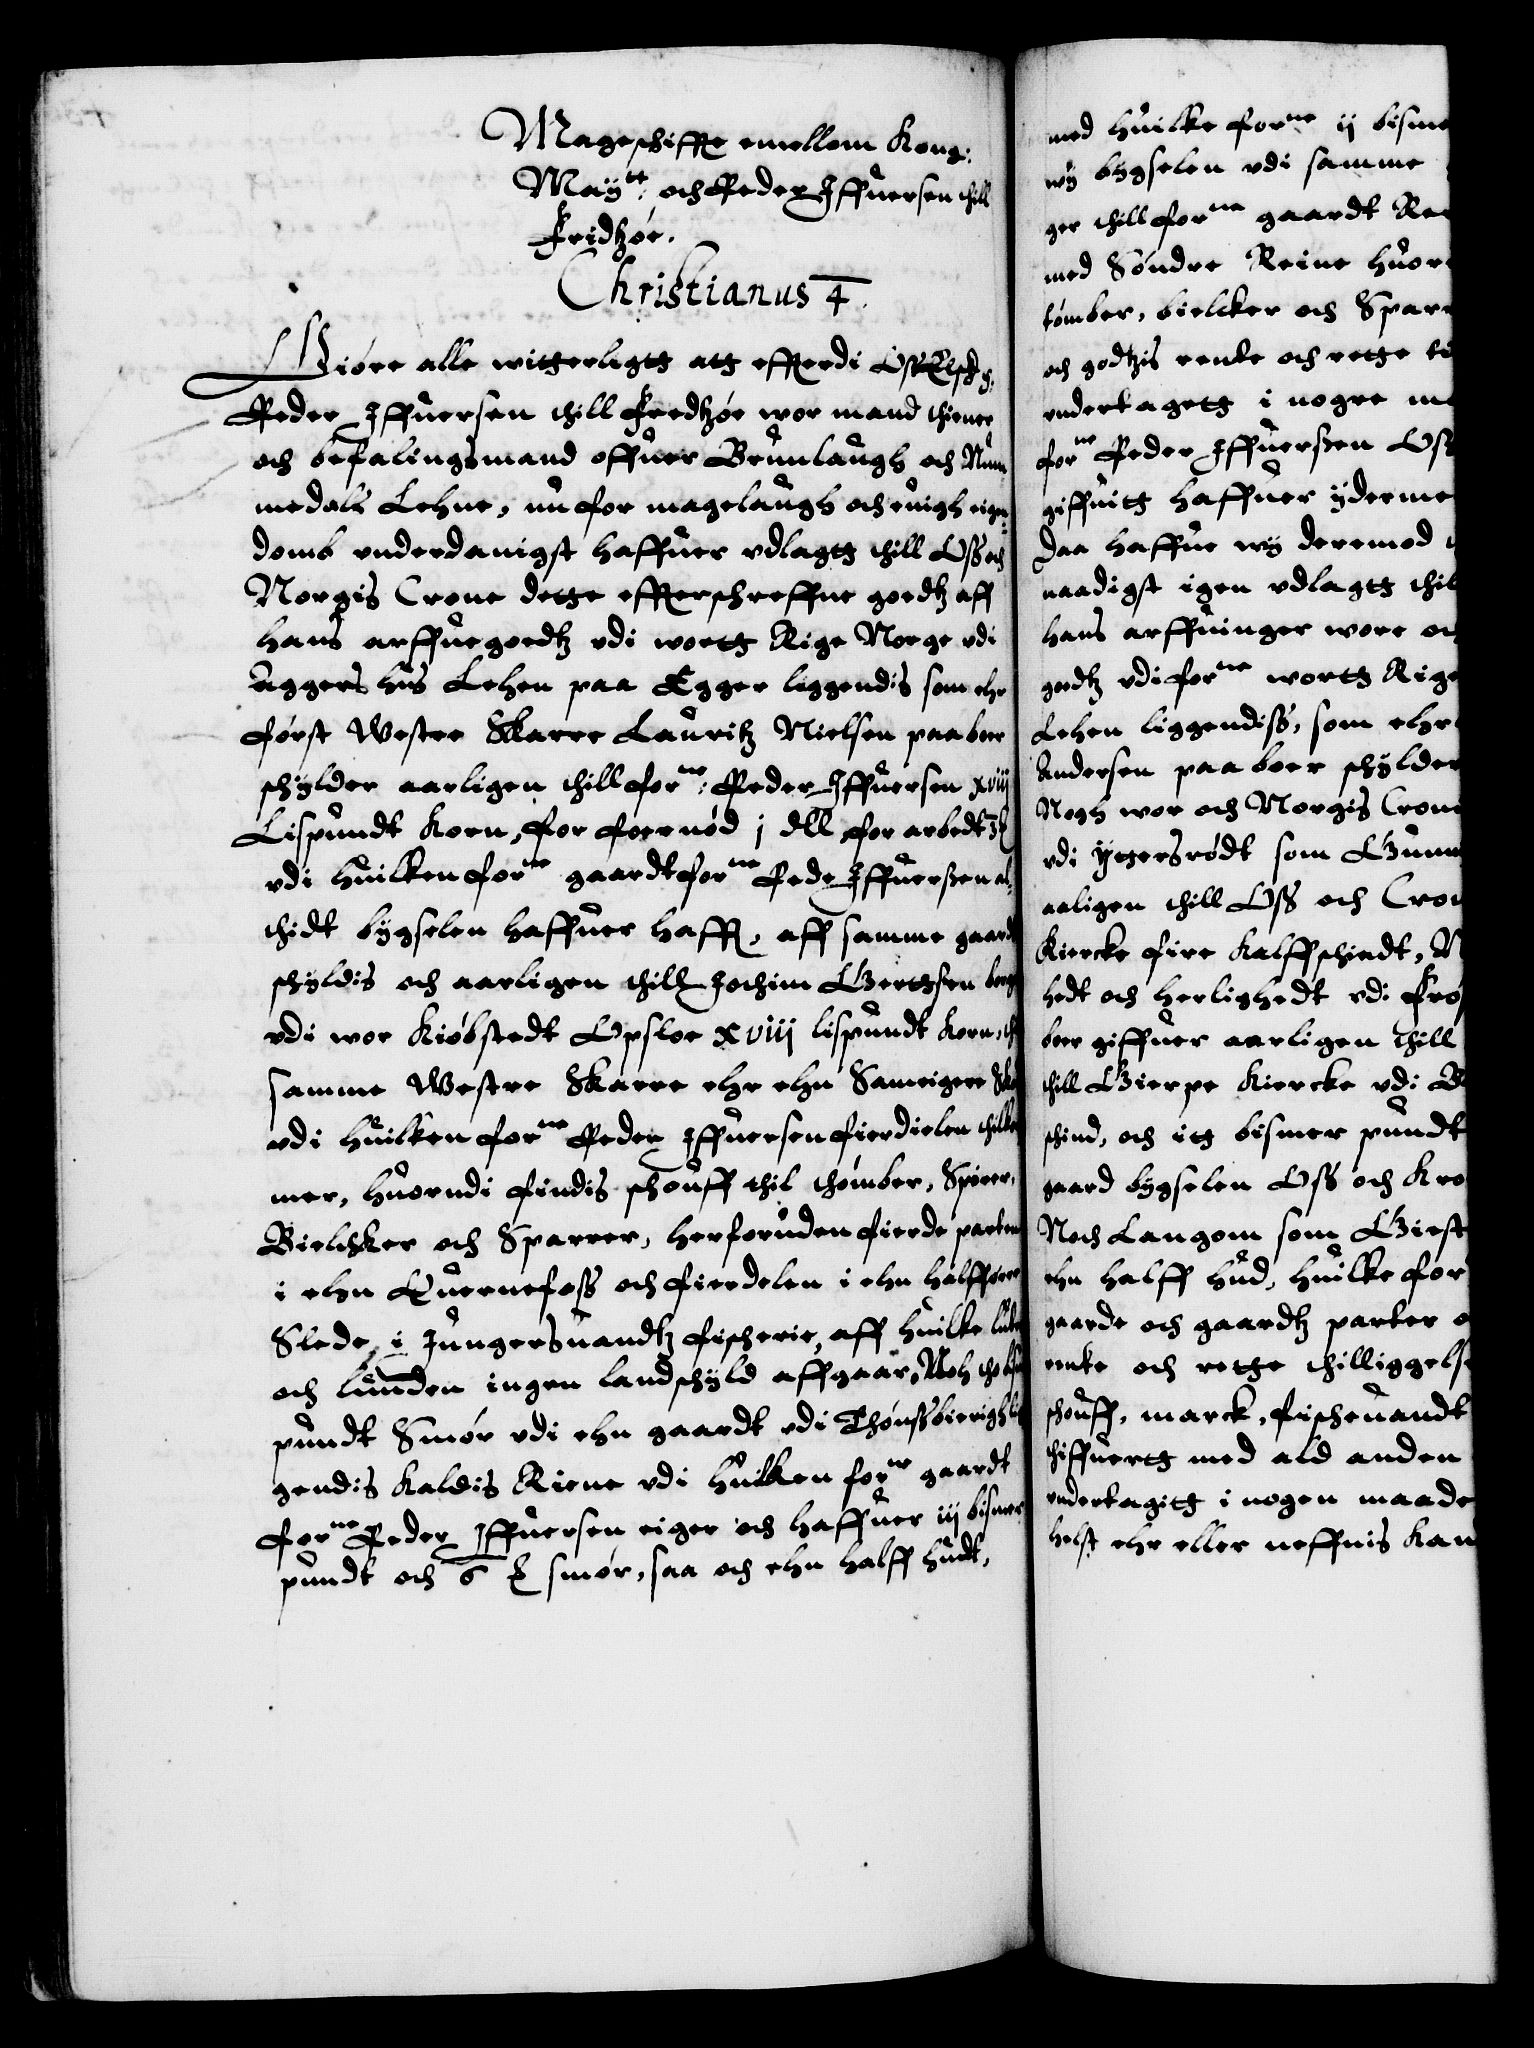 Mageschiffte emellom Kong:
Maytt: och Peder Iffuersen thill
Fridtzøe.
Christianus 4.
Giøre alle witterligtt att effterdi Oss Elsch: g:
Peder Iffuersen thill Fredtzøe wor mand thiener
och befalingsmand offuer Brunlaugh och Num¬
medals Lehne, nu for magelaugh och euigh eigen¬
domb vnderdanigst haffuer vdlagtt thill Oss och
Norgis Crone dette effterschreffne goedtz aff
hans arffuegoedtz vdi wortt Rige Norge vdi
Aggers hus Lehen paa Egger liggendis som ehr
først Westre Skarre Lauritz Nielsen paaboer
schylder aarligen thill forne: Peder Iffuersen xviij
Lispundt Korn, for foernød j dll for arbedt
vdi huilken forne gaardt forne Peder Iffuerssen al¬
thidt bygselen haffuer hafft, aff samme gaardt
schyldis och aarligen thill Jochim Bertsen borger
vdi wor Kiøbstedt Opsloe xviij lispundt Korn, thill
samme Westre Skarre ehr ehn Sameigere Skou
vdi huilken forne Peder Iffuersen fierdielen thilkom
mer, huorudi findis schouff thil thømber, Spirer,
Bielcker och Sparrer, herforuden fierde parten
i ehn Quernefoss och fierdelen i ehn halff ørre
Slede i Jungersuandtz fischerie, aff huilke
och lunden ingen landschyld affgaar, Noch tho bismer
pundt Smør vdi ehn gaardt vdi Thønssbierigh lig
gendis kaldis Riene vdi huilken forne gaardt
forne Peder Iffuersen eiger och haffuer iij bismer
pundt och 6 smør, saa och ehn halff hudt,
med huilke forne ij bisme
wy bygselen vdi samme
ger thill forne gaardt Rei
med Søndre Reine huor
tømber, bielcker och Sparr
och godtzis rente och rette ti
vndertagett i nogre ma
forne Peder Iffuerssen Oss
giffuitt haffuer yderme
Daa haffue wy deremod
naadigst igen vdlagtt thil
hans arffuinger wore oc
goedtz vdi forne wortt Rige
Lehen liggendiss, som ehr
Andersen paa boer schylder
Nogh wor och Norgis Cron
vdi Yttersrødt som Gunn
aaligen thill Oss och Cron
Kiercke fire Kalffschindt, N
hedt och herlighedt vdi Frø
boer giffuer aarligen thill
thill Gierpe Kiercke vdi B
schind, och itt bismer pundt
gaard bygselen Oss och Kro
Noch Langom som Giest
ehn halff hud, huilke for
gaarde och gaardtz parter o
rente och rette thilliggelse
schouff, marck, fischeuandt
thiffuertt med ald anden
vndertagitt i nogen maade
helst ehr eller neffnis kan